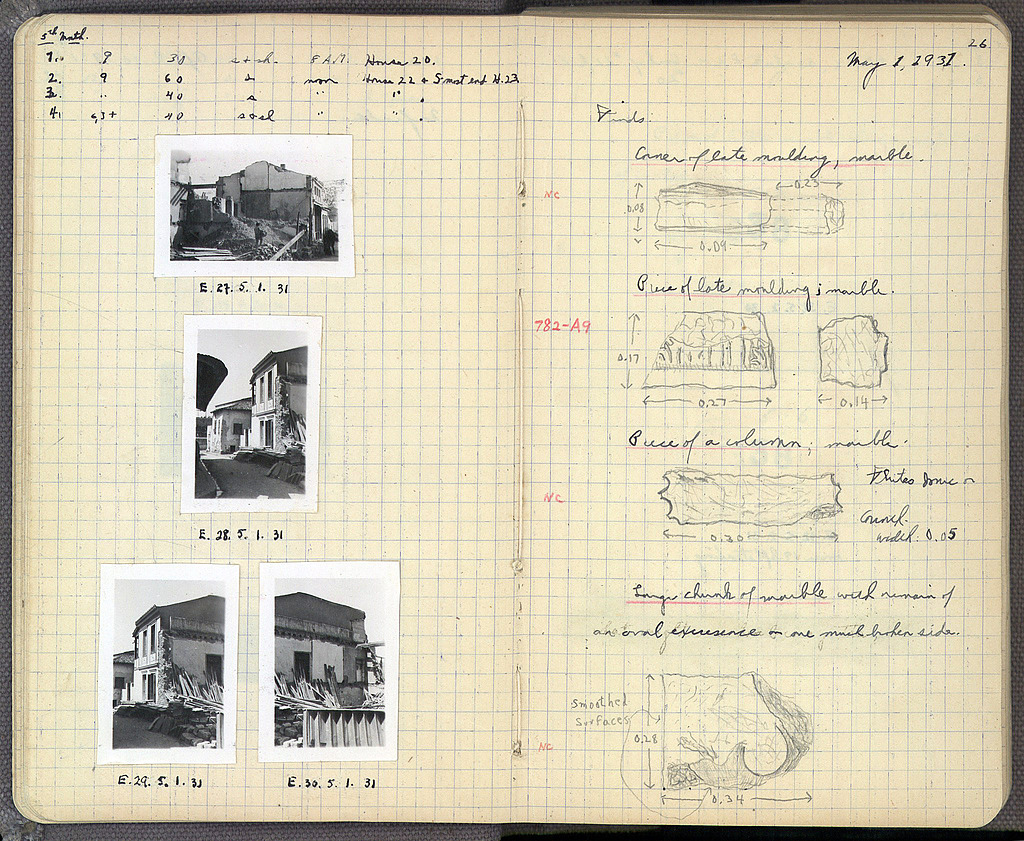 5th Month.
1. 9 30 s+sh. 8 A.M. House 20.
2. 9 60 s noon House 22 + S most end H.23
3. " 40 s " " .
4. 6,3+ 40 s+sl " " .
E.27. 5. 1. 31
E.28. 5. 1. 31
E.29. 5. 1. 31
E.30. 5. 1. 31
26
May 1, 1931.
Finds:
Corner of late moulding, marble.
NC
0.23
0.08
0.09
Piece of late moulding; marble.
782-A9
0.17
0.27
0.14
Piece of a column; marble.
NC
Flutes Ionic or
Corinth.
width: 0.05
0.30
Large chunk of marble with remain of
an oval excresence on one much broken side.
Smoothed
surfaces
0.28
NC
0.34